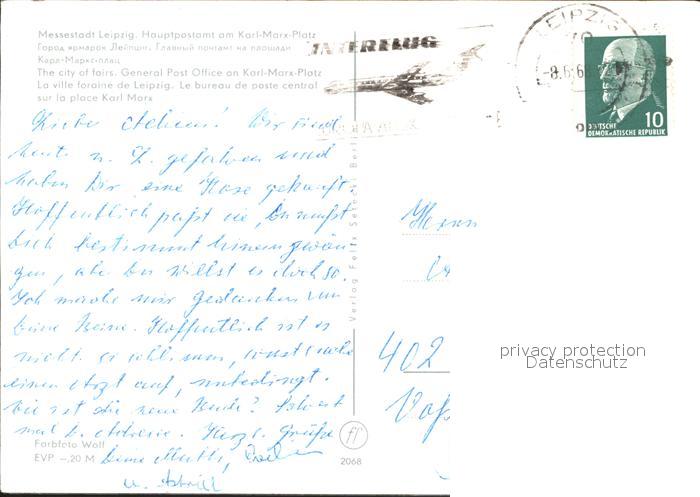 Messestadt Leipzig. Hauptpostamt am Karl-Marx-Platz
Город ярмарок Лейпциг. Главный почтамт на площади
Карл-Маркс-плац
The city of fairs. General Post Office on Karl-Marx-Platz
La ville foraine de Leipzig. Le bureau de poste central
sur la place Karl Marx
INTERFLUG
LEIPZIG
-8.6.68
10
DEUTSCHE
DEMOKRATISCHE REPUBLIK
Wir sind
heute n. L. gefahren und
haben Dir eine Hose gekauft.
Hoffentlich paßt sie, Du mußt
Dich bestimmt hinein zwän
gen, aber Du willst es doch so.
Ich mache mir Gedanken um
Deine Beine. Hoffentlich ist es
nicht so schlimm, sonst suche
einen Arzt auf, unbedingt.
Wie ist die neue Bude? Schreib
mal d. Adresse. Herzl. Grüße
Deine Mutti,
u.
Verlag Felix Setecki Berlin
Herrn
402
privacy protection
Datenschutz
Farbfoto Wolf
EVP -.20 M
ff
2068